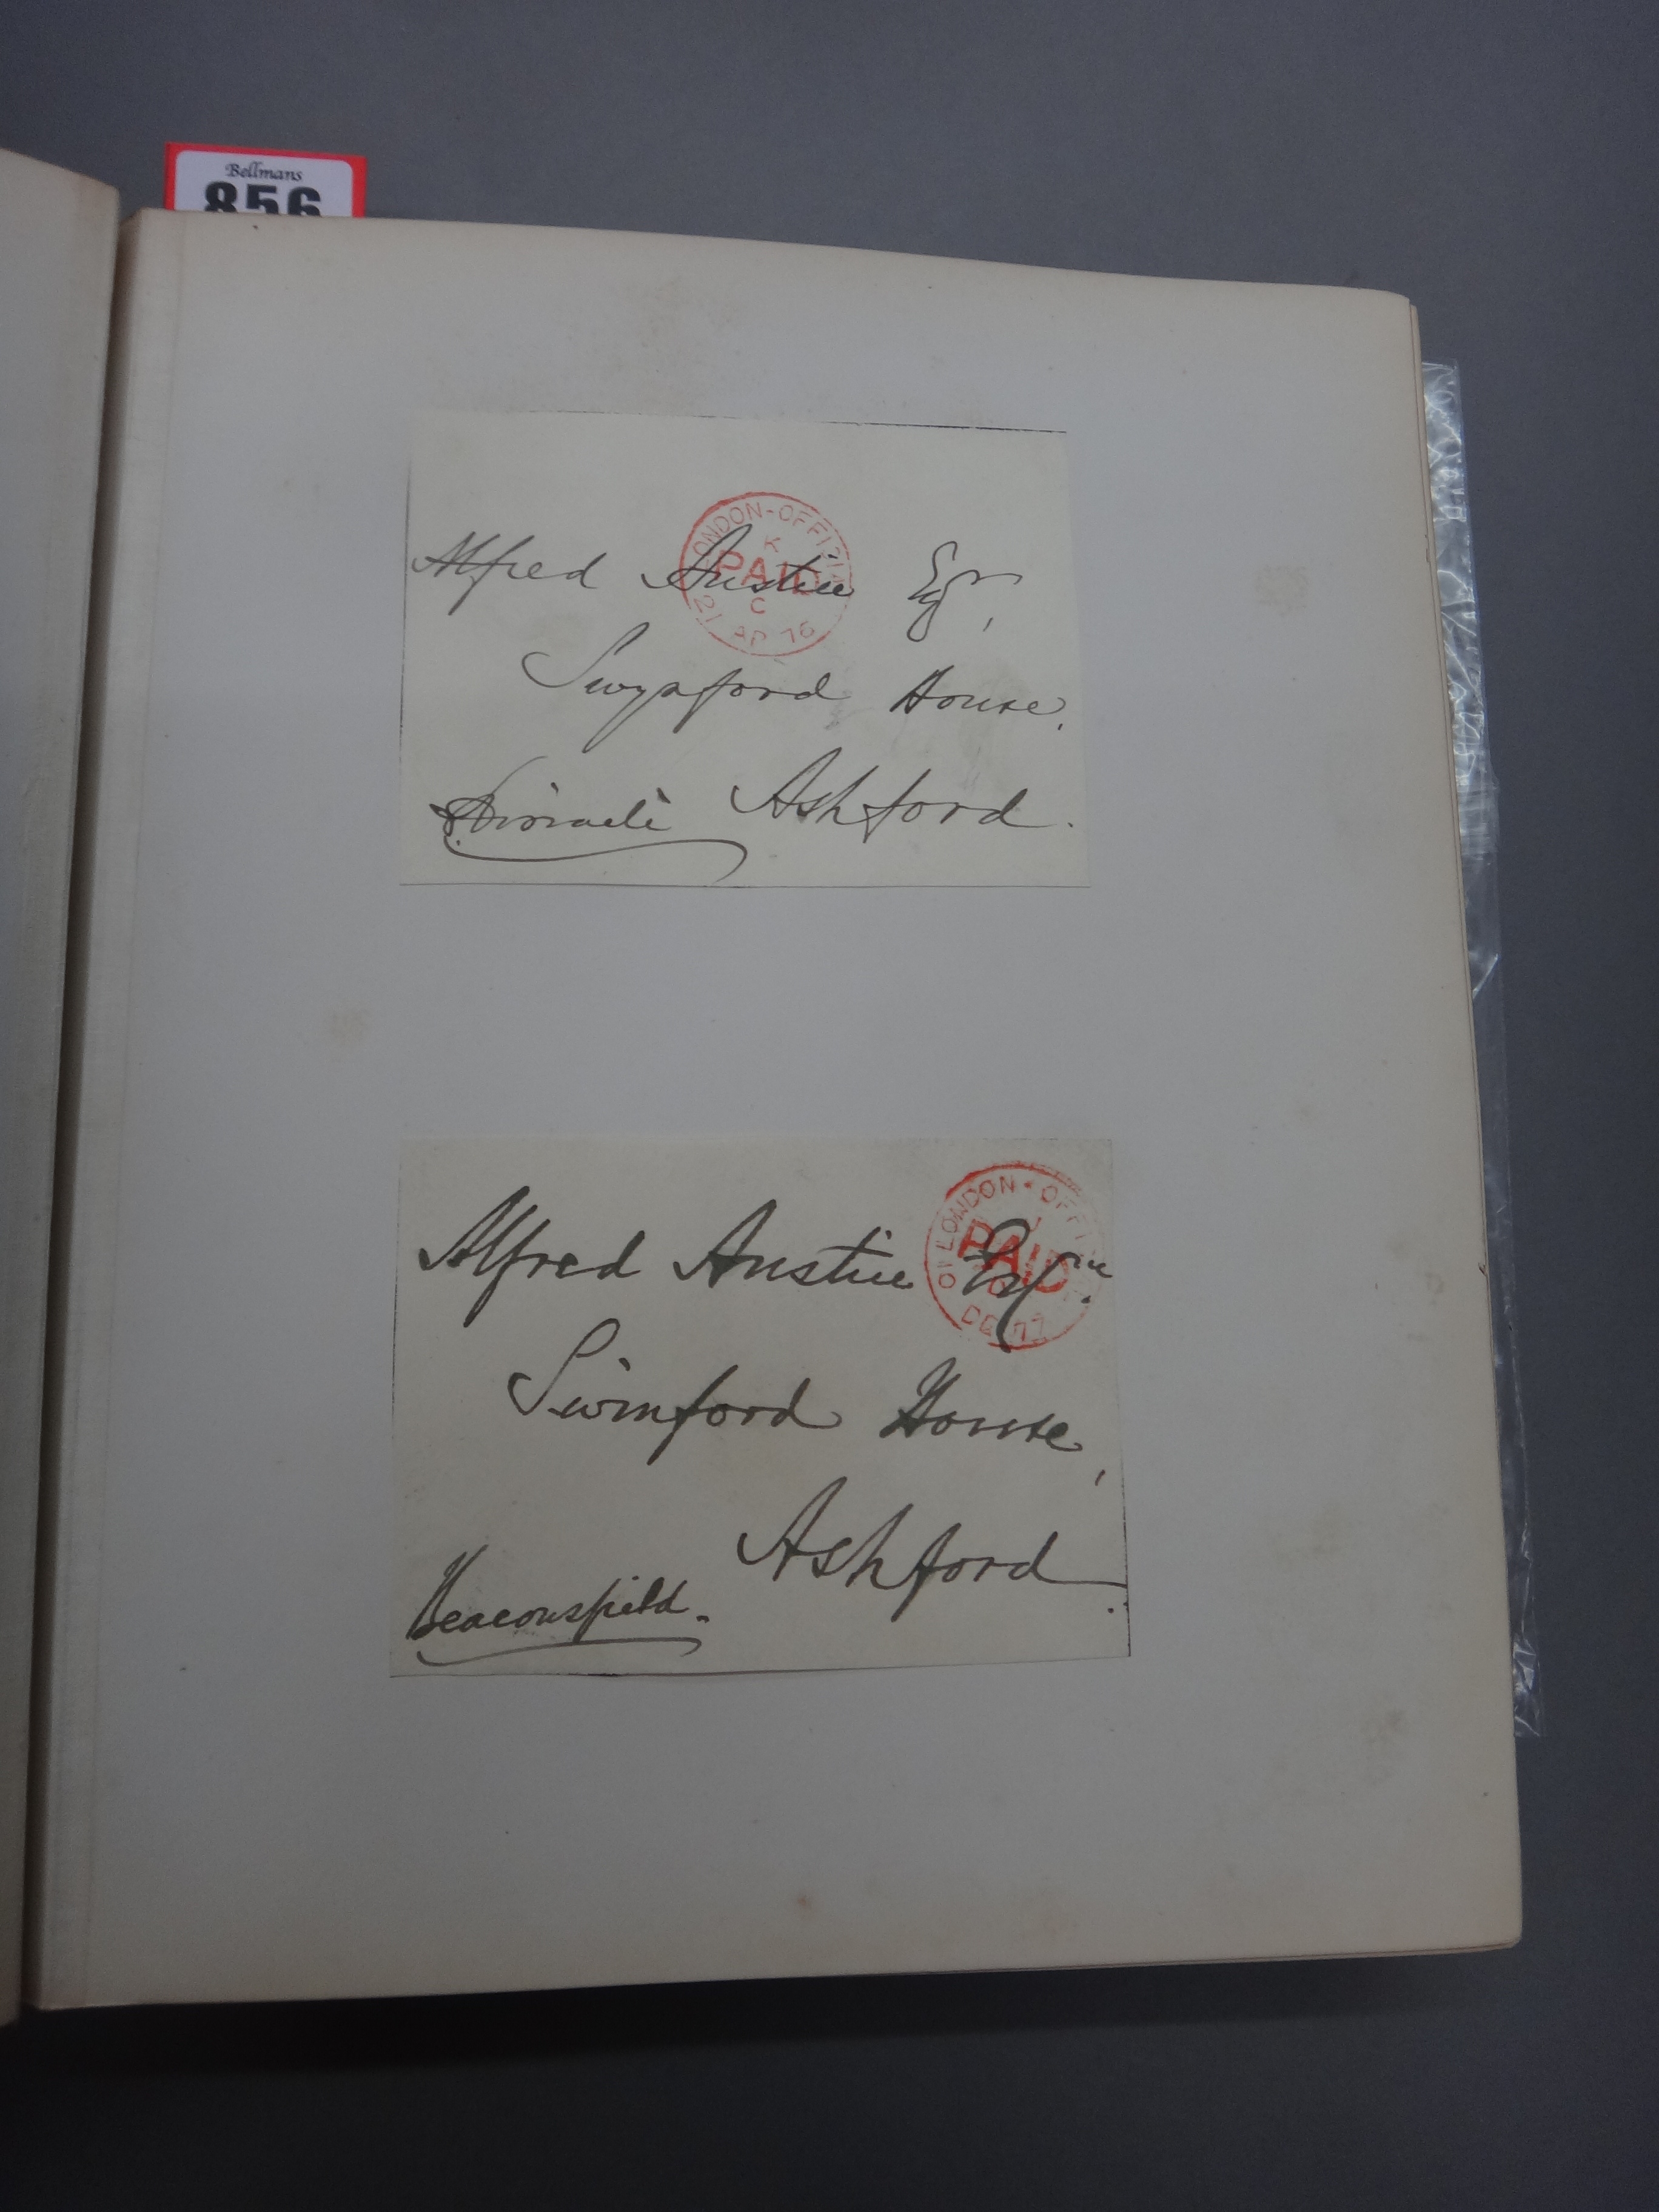 Bellmans
856
LONDON-OFFICIAL
K
PAID
C
21 AP 76
Alfred Austin Esqr,
Swynford House,
Disraeli Ashford.
LONDON-OFF
PAID
DE 77
Alfred Austin
Swinford House,
Ashford.
Beaconsfield.